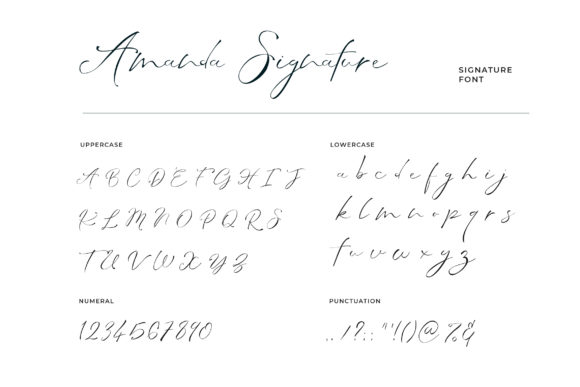 Amanda Signature
SIGNATURE
FONT
UPPERCASE
A B C D E F G H I J
K L M N O P Q R S
T U V W X Y Z
LOWERCASE
a b c d e f g h i j
k l m n o p q r s
t u v w x y z
NUMERAL
1234567890
PUNCTUATION
. , ! ? ; : " ' ! ( ) @ % &